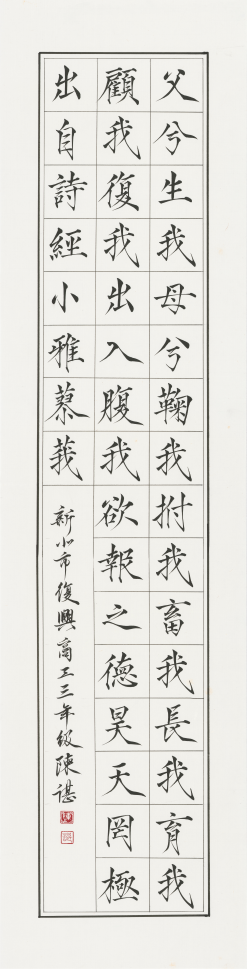 父兮生我母兮鞠我拊我畜我長我育我
顧我復我出入腹我欲報之德昊天罔極
出自詩經小雅蓼莪
新北市復興商工三年級陳諶